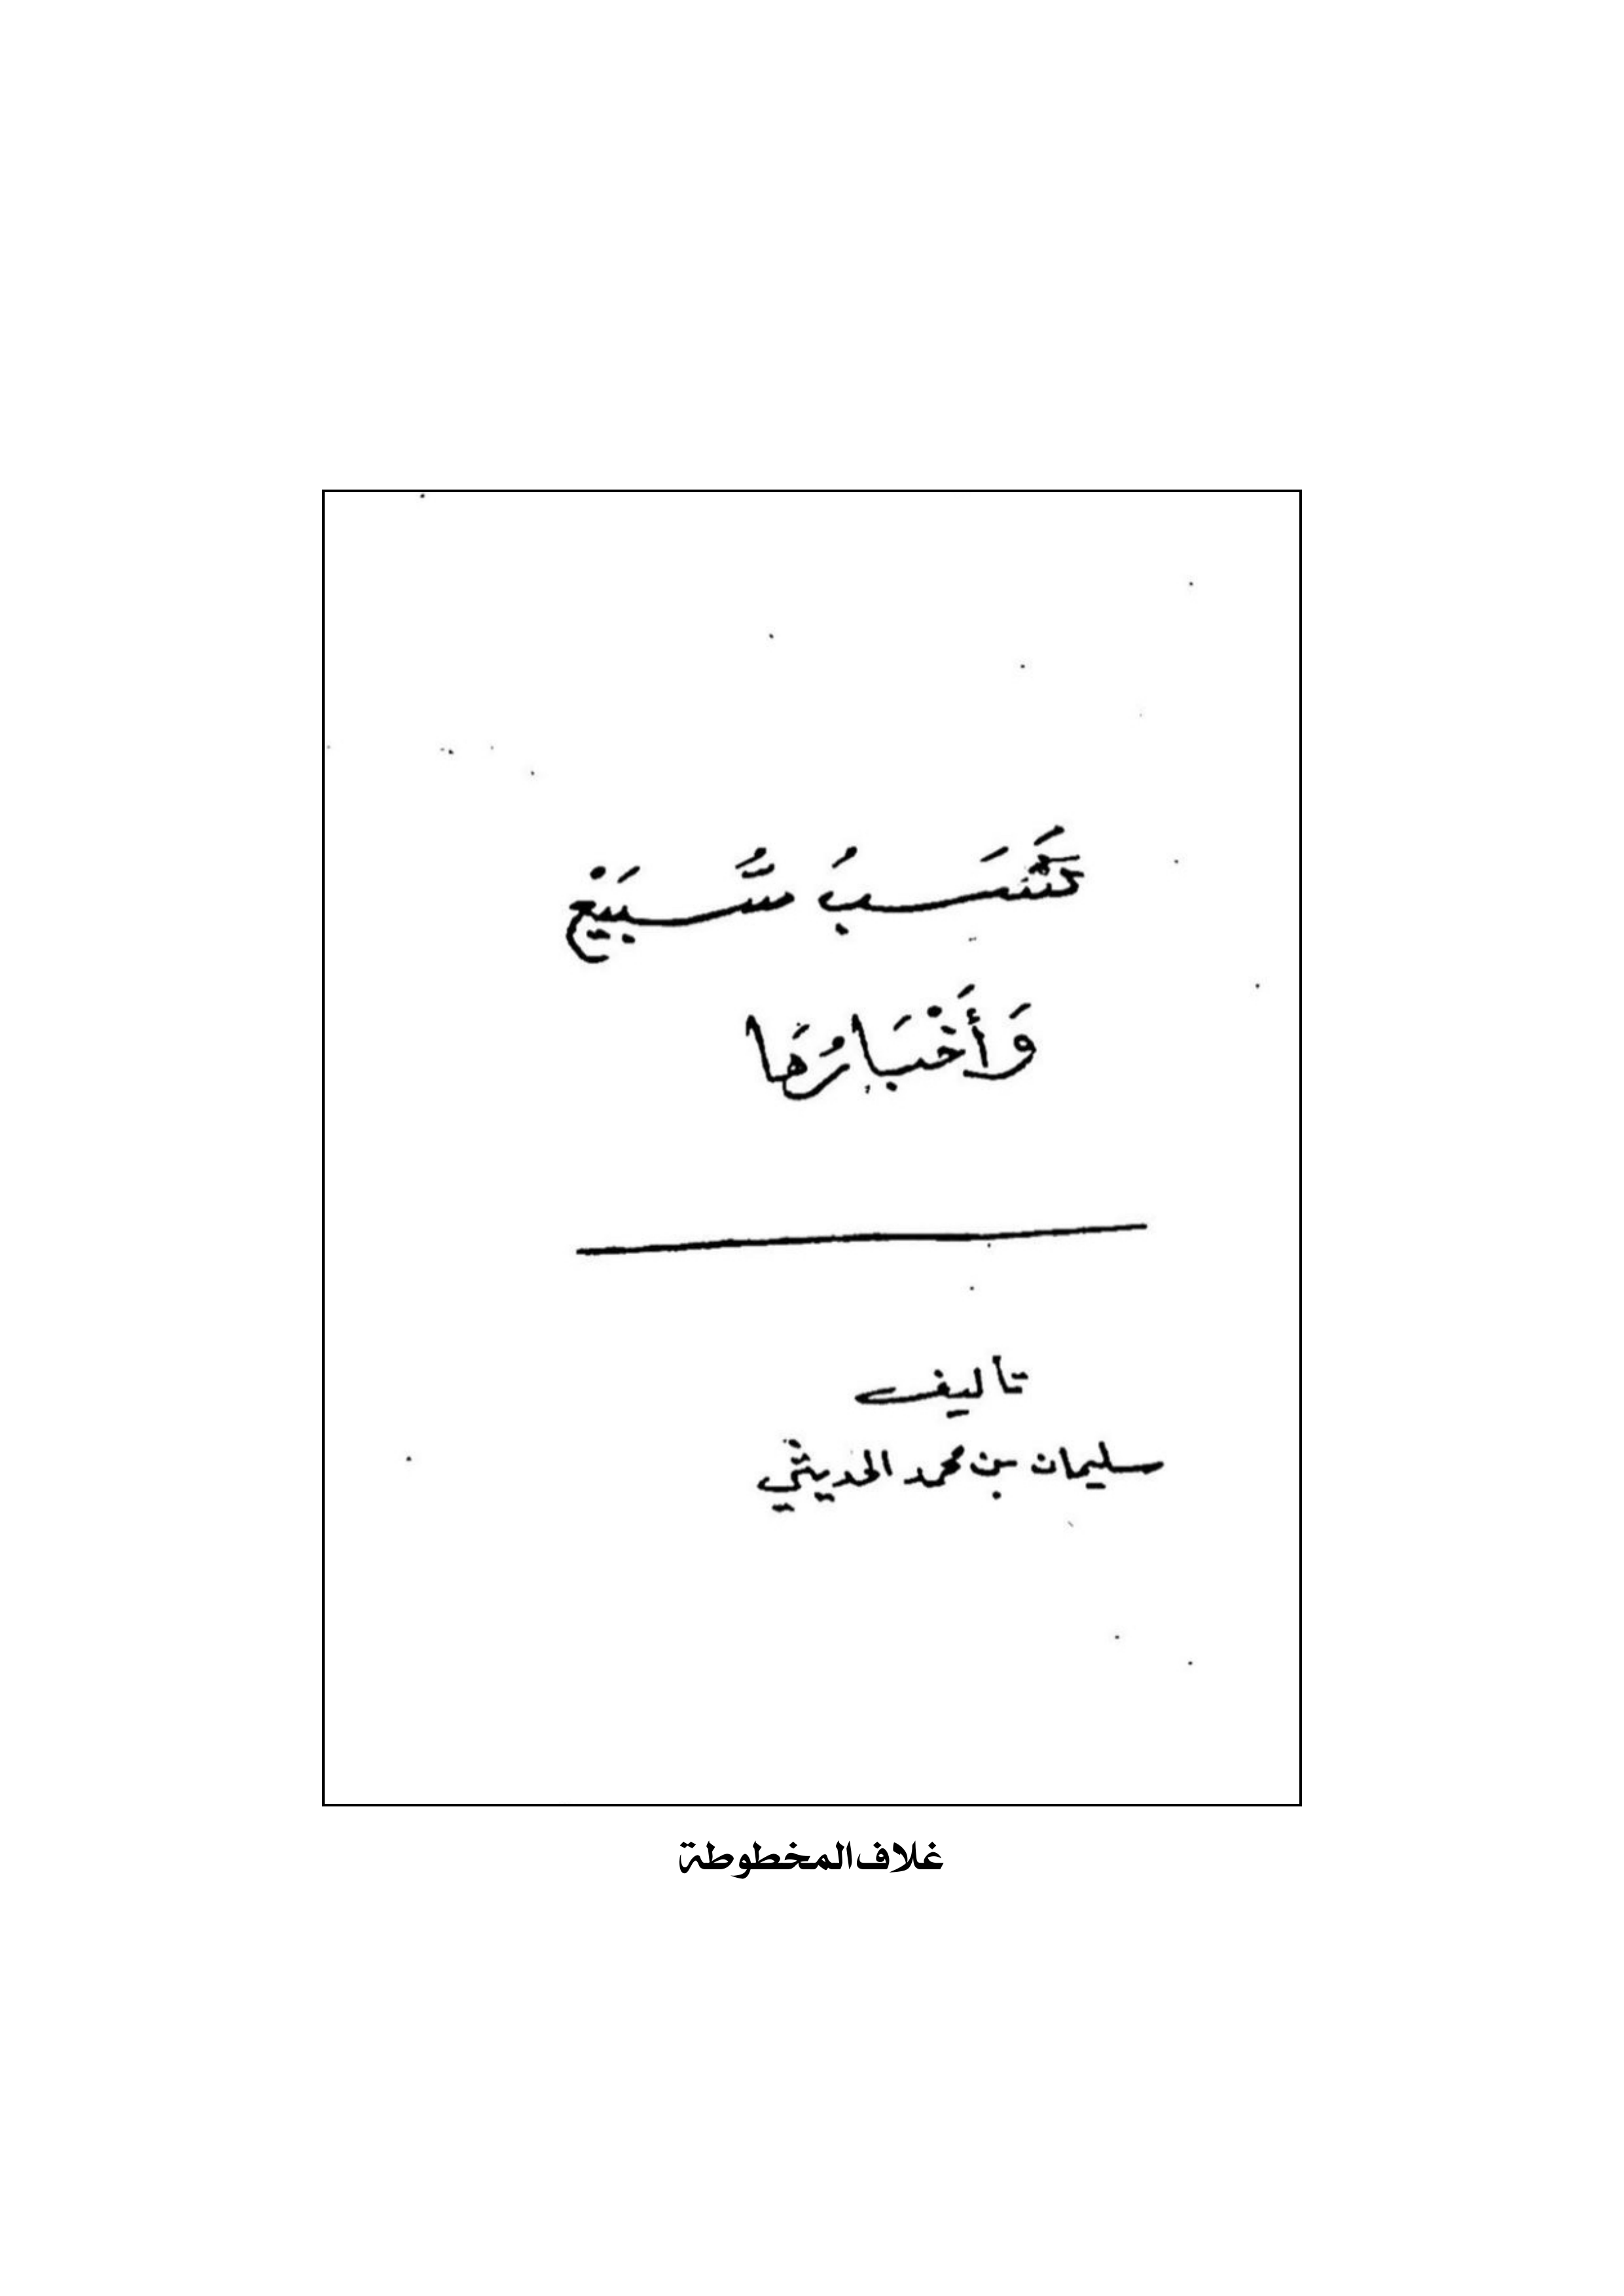 نَسَبُ سُّبَيْع
وَأَخْبَارُهَا
تاليف
سليمان بن محمد الحديثي
غلاف المخطوطة